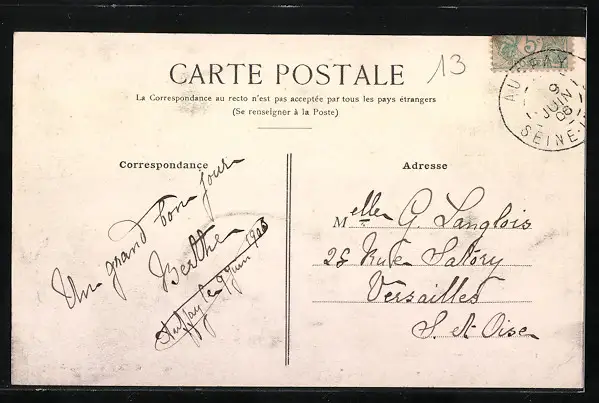 CARTE POSTALE
13
La Correspondance au recto n'est pas acceptée par tous les pays étrangers
(Se renseigner à la Poste)
AUFFAY
9
JUIN
06
SEINE
Correspondance
Adresse
Un grand bonjour
Berthe
Auffay le 9 juin 1906
Melle G Langlois
25 Rue Satory
Versailles
S. et Oise